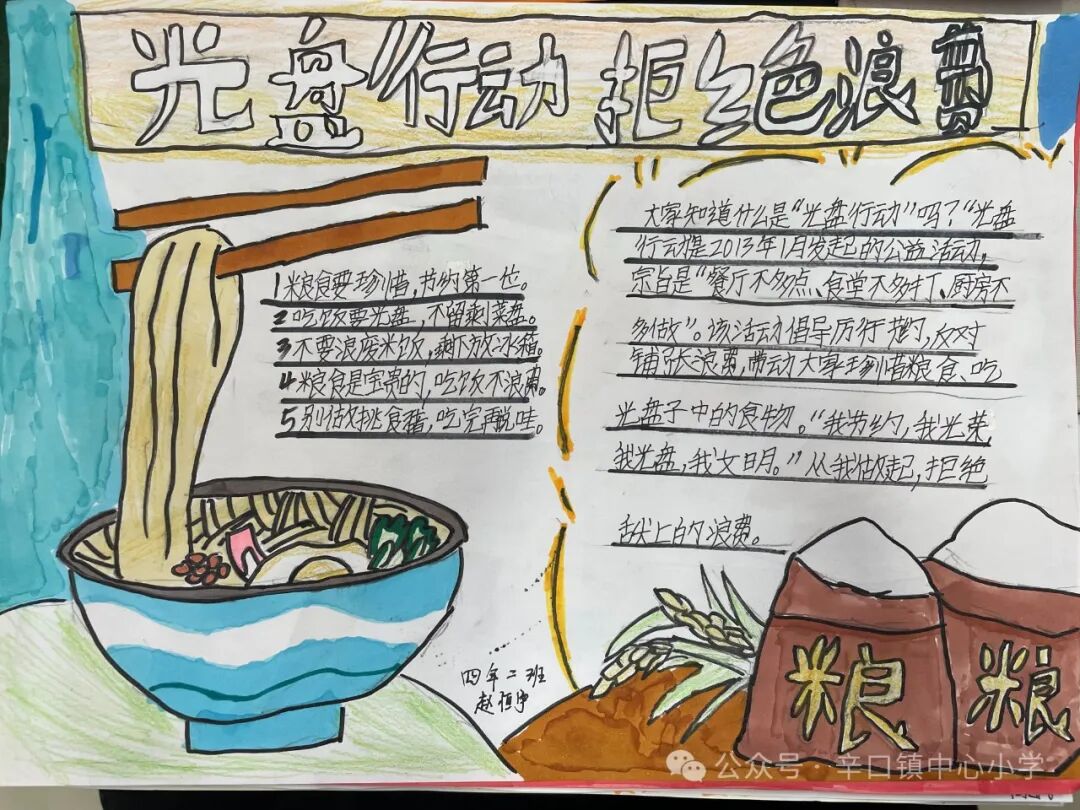 光盘行动 拒绝浪费
1 粮食要珍惜,节约第一位。
2 吃饭要光盘,不留剩菜盘。
3 不要浪废米饭,剩下放冰箱。
4 粮食是宝贵的,吃饭不浪费。
5 别做挑食猪,吃完再说哇。
大家知道什么是“光盘行动”吗?“光盘
行动是2013年1月发起的公益活动,
宗旨是“餐厅不多点、食堂不多打、厨房不
多做”。该活动倡导厉行节约,反对
铺张浪费,带动大家珍惜粮食、吃
光盘子中的食物。“我节约,我光荣,
我光盘,我文明。”从我做起,拒绝
舌尖上的浪费。
四年二班
赵恒
粮
粮
公众号·辛口镇中心小学